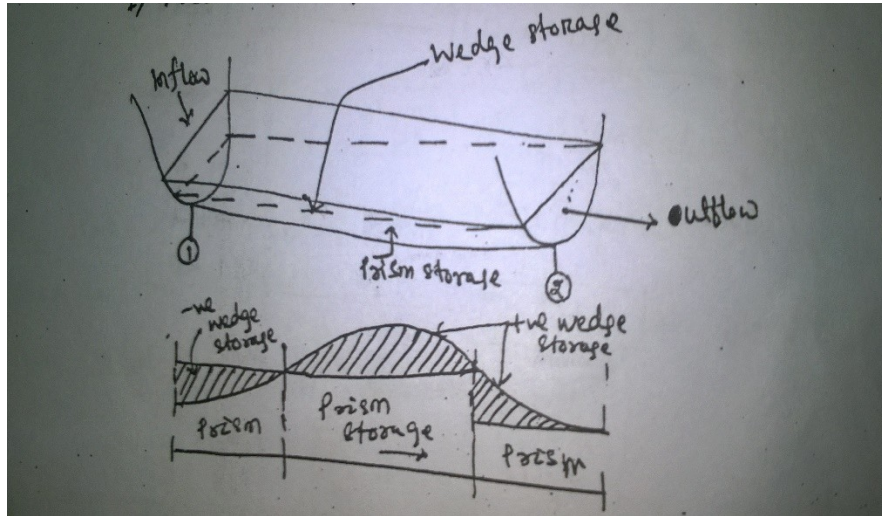 Wedge storage
Inflow
Outflow
1
Prism storage
2
-ve
wedge
storage
+ve wedge
storage
Prism
Prism
storage
Prism